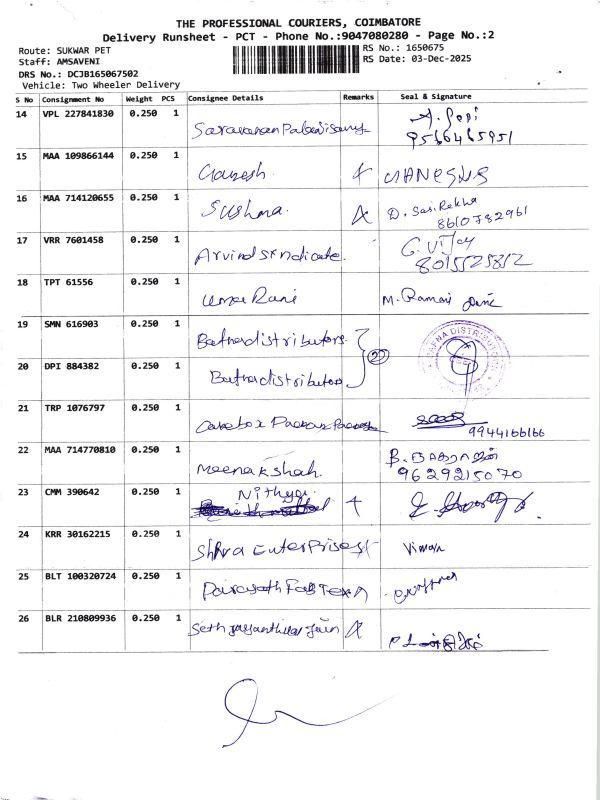 THE PROFESSIONAL COURIERS, COIMBATORE
Delivery Runsheet - PCT - Phone No.:9047080280 - Page No.:2
Route: SUKWAR PET
RS No.: 1650675
Staff: AMSAVENI
RS Date: 03-Dec-2025
DRS No.: DCJB165067502
Vehicle: Two Wheeler Delivery
S No Consignment No Weight PCS Consignee Details Remarks Seal & Signature
14 VPL 227841830 0.250 1
9566465951
15 MAA 109866144 0.250 1 Ganesh GANESH
16 MAA 714120655 0.250 1 Sushma. D. SasiRekha
8610782961
17 VRR 7601458 0.250 1 Arvind syndicate. G. Vijay
8015525812
18 TPT 61556 0.250 1 Uma Rani M. Ramani
19 SMN 616903 0.250 1 Bafnadistributors.
20 DPI 884382 0.250 1 Bafnadistributors
21 TRP 1076797 0.250 1
9944166166
22 MAA 714770810 0.250 1 Meenakshah.
9629215070
23 CMM 390642 0.250 1 Nithya.
24 KRR 30162215 0.250 1 Shiva Enterprises
25 BLT 100320724 0.250 1
26 BLR 210809936 0.250 1